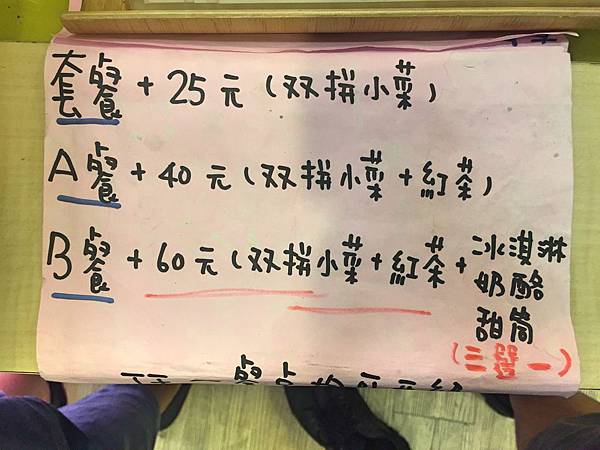 套餐 + 25 元 (双拼小菜)
A餐 + 40 元 (双拼小菜 + 紅茶)
B餐 + 60 元 (双拼小菜 + 紅茶 + 冰淇淋
奶酪
甜筒
(三選一)